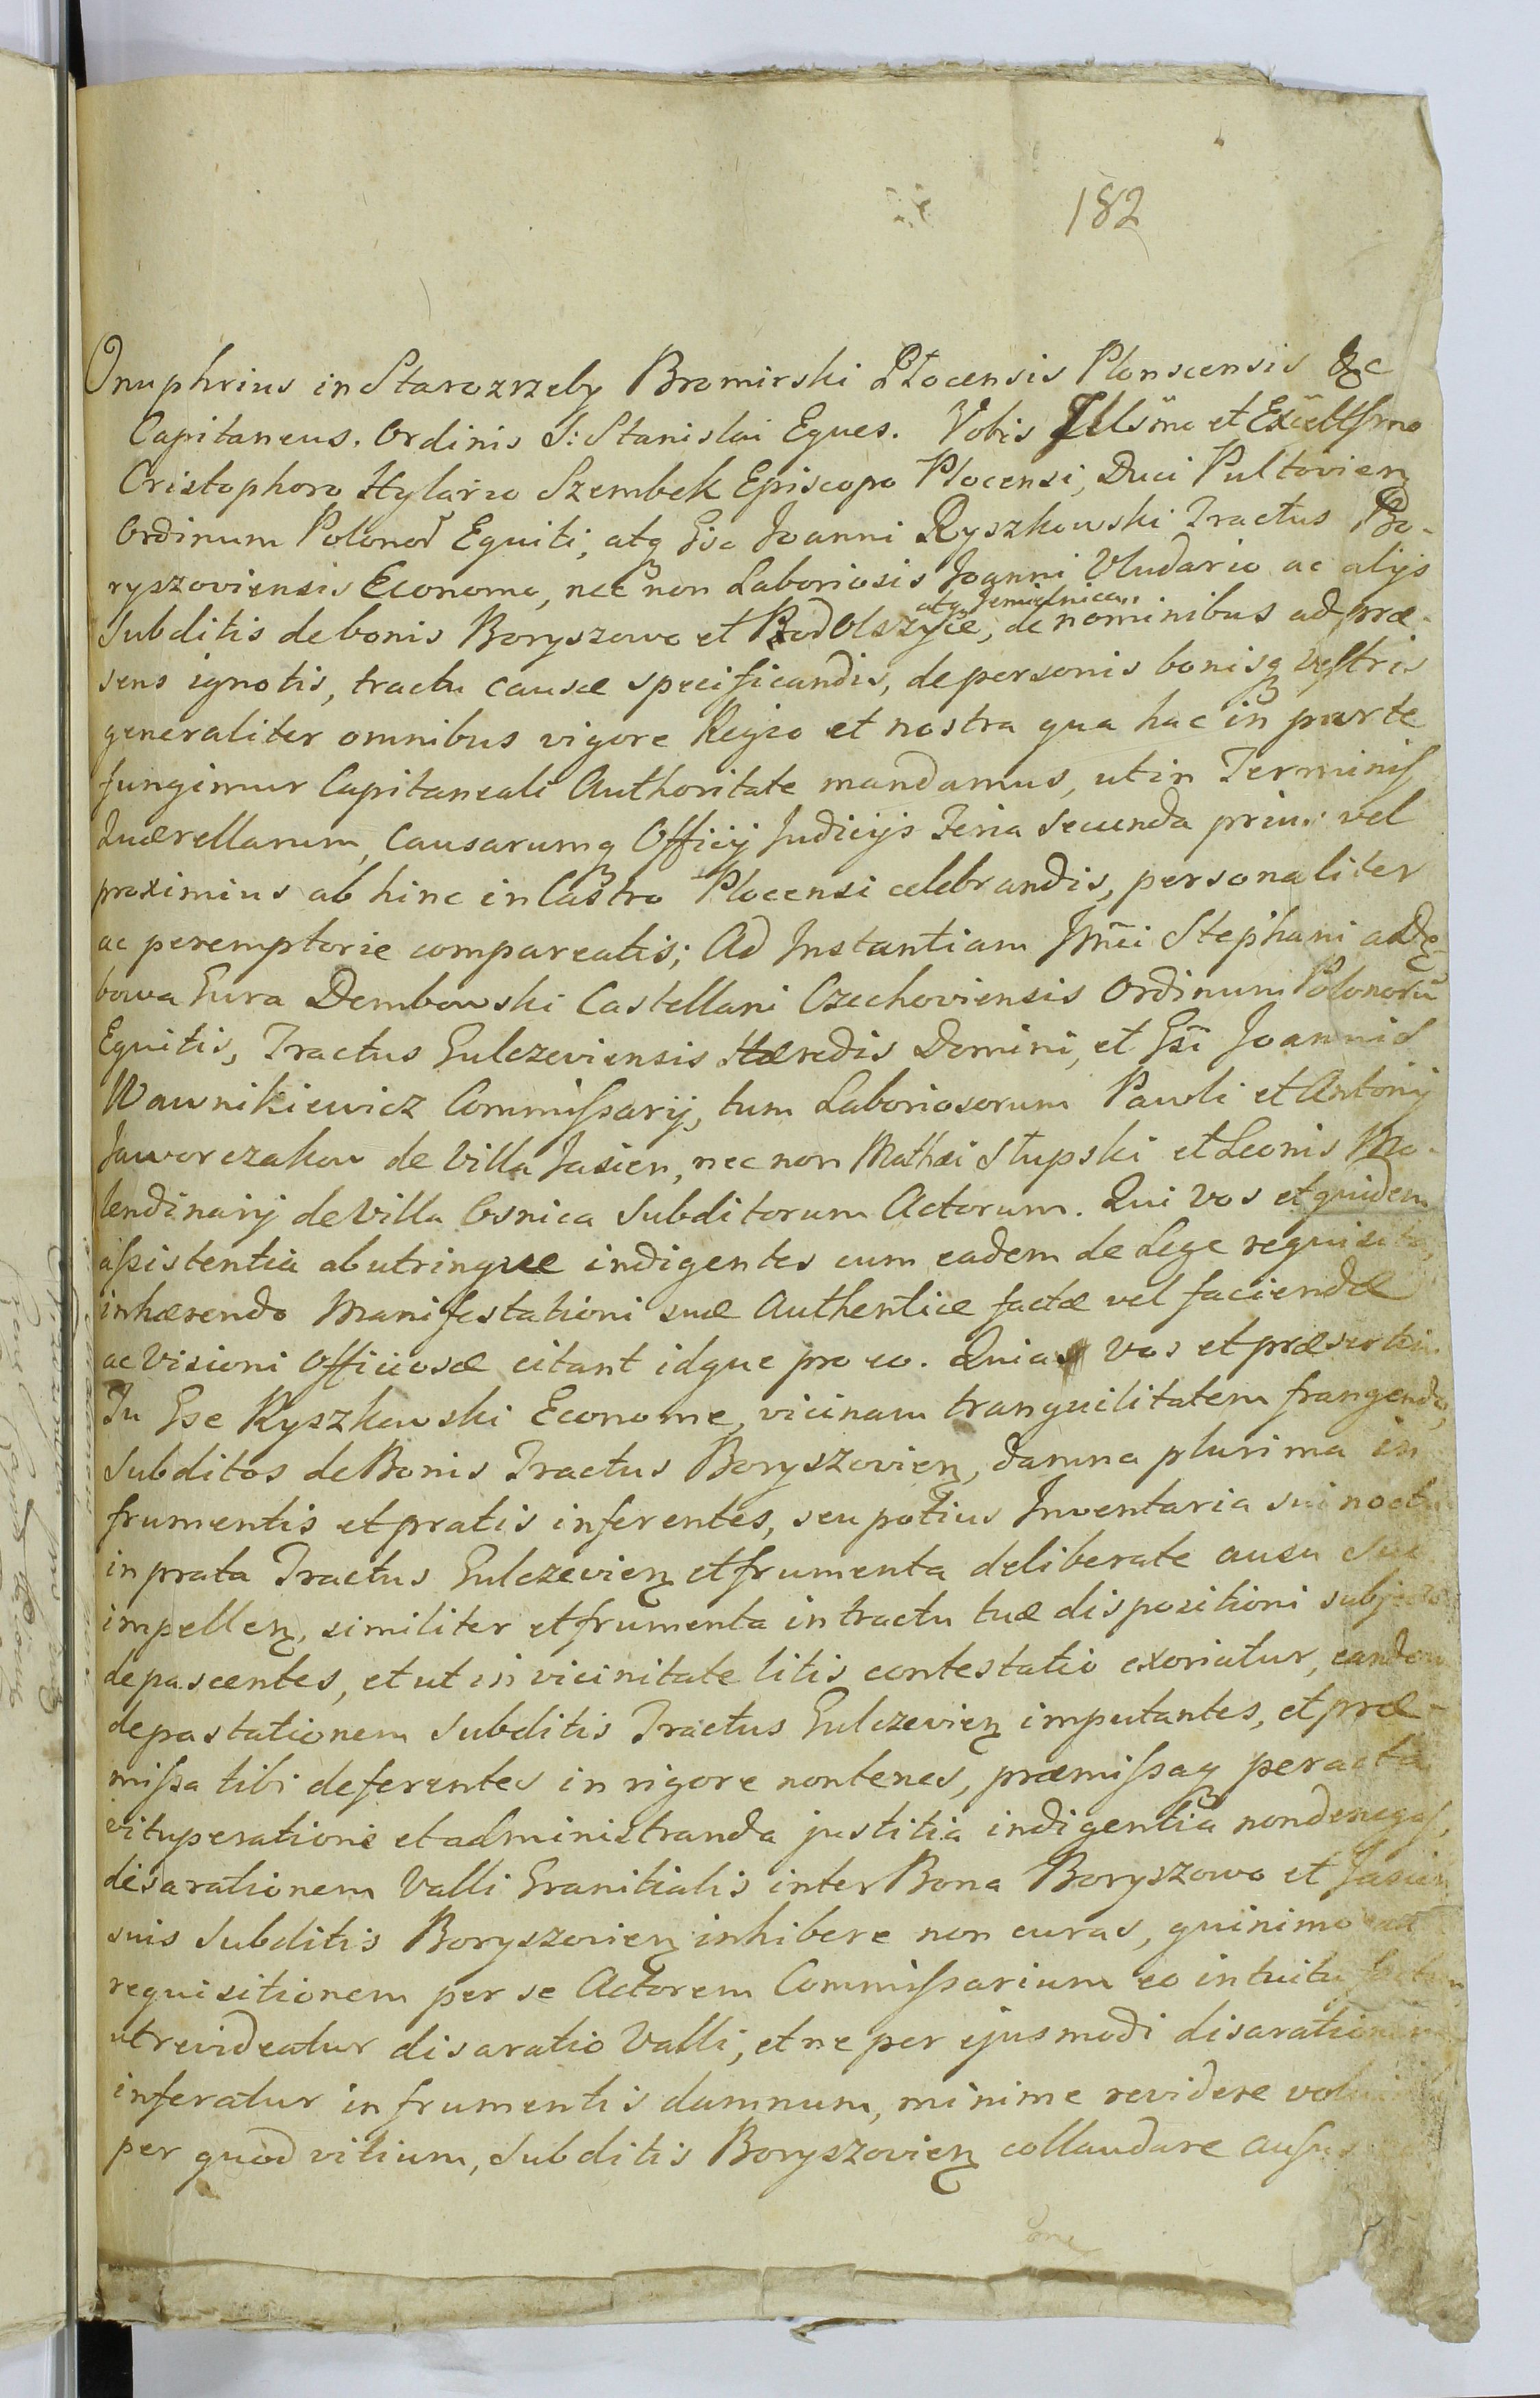 182
Onuphrius in Starozrzeby Bromirski Płocensis Plonscensis &c
Capitaneus. Ordinis S: Stanislai Eques. Vobis Illsmo et Excelltsmo
Cristophoro Hylario Szembek Episcopo Płocensi, Duci Pultovien
Ordinum Polonor Equiti, atq Gso Joanni Ryszkowski Tractus Bo-
ryszoviensis Economo, nec non Laboriosis Joanni Vludario ac alijs
atq
Subditis de bonis Boryszowo et Podolszyce, de nominibus ad præ-
sens ignotis, tractu causæ specificandis, de personis bonisq vestris
generaliter omnibus vigore Regio et nostra qua hac in parte
fungimur Capitaneali Authoritate mandamus, ut in Terminis
Quærellarum, Causarumq Officij Judicijs Feria Secunda prius vel
proximius ab hinc in Castro Plocensi celebrandis, personaliter
ac peremptorie compareatis; Ad Instantiam Jmci Stephani a Dę-
bowa Gura Dembowski Castellani Czechoviensis Ordinum Polonorū
Equitis, Tractus Gulczeviensis Hæredis Domini, et Gsi Joannis
Wawnikiewicz Commissarij, tum Laboriosorum Pauli et Antonij
Jaworczakow de Villa Jasien, nec non Mathæi Słupski et Leonis Mo-
lendinarij de Villa Osnica Subditorum Actorum. Qui Vos et quidem
assistentia ab utrinque indigentes cum eadem de Lege requisita,
inhærendo Manifestationi suæ Authentice factæ vel faciendæ
ac Visioni Officiosæ citant idque pro eo. Quia Vos et præsertim
Tu Gse Ryszkowski Econome, vicinam tranquilitatem frangendo,
Subditos de Bonis Tractus Boryszovien, damna plurima in
frumentis et pratis inferentes, seu potius Inventaria sui noctu
in prata Tractus Gulczevien et frumenta deliberate ausu suo
impellen, similiter et frumenta in tractu tuæ dispositioni subjecto
depascentes, et ut in vicinitate litis contestatio exoriatur, eandem
depastationem Subditis Tractus Gulczevien imputantes, et præ-
missa tibi deferentes in rigore non tenes, præmissaq peracta
vituperatione et administranda justitia indigentia non denegas,
disarationem Valli Granitialis inter Bona Boryszowo et Jasien
suis Subditis Boryszovien inhibere non curas, quinimo ad
requisitionem per se Actorem Commissarium eo intuitu factam,
ut revideatur disaratio Valli, et ne per ejusmodi disarationem
inferatur in frumentis damnum, minime revidere
per quod vitium, Subditis Boryszovien collaudare